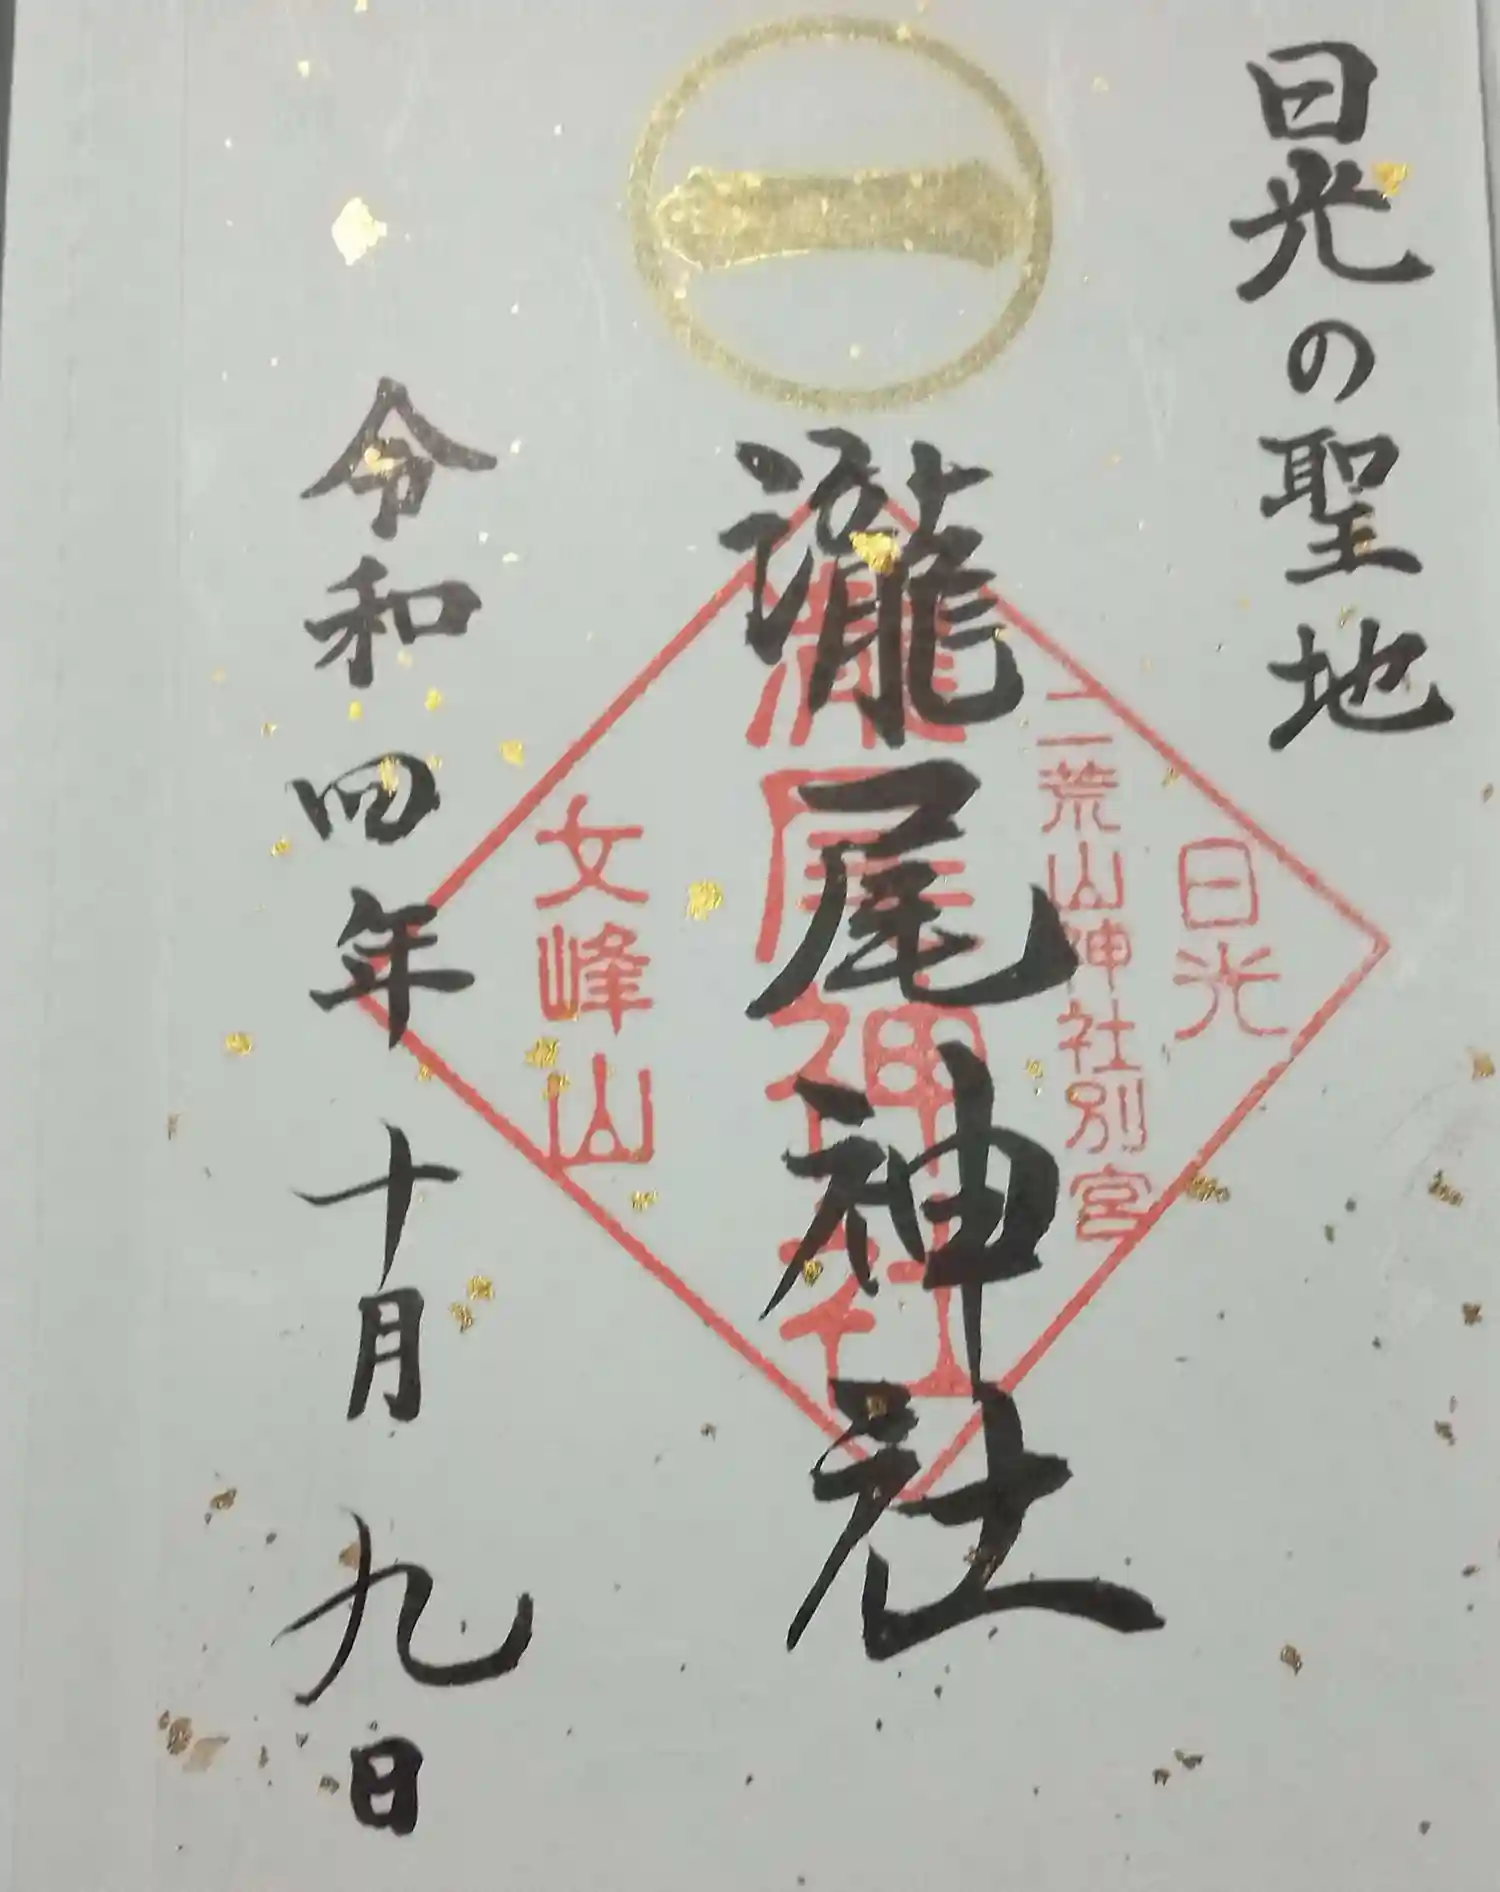 日光の聖地
日光
二荒山神社別宮
瀧尾神社
瀧尾神社
女峰山
令和四年十月九日